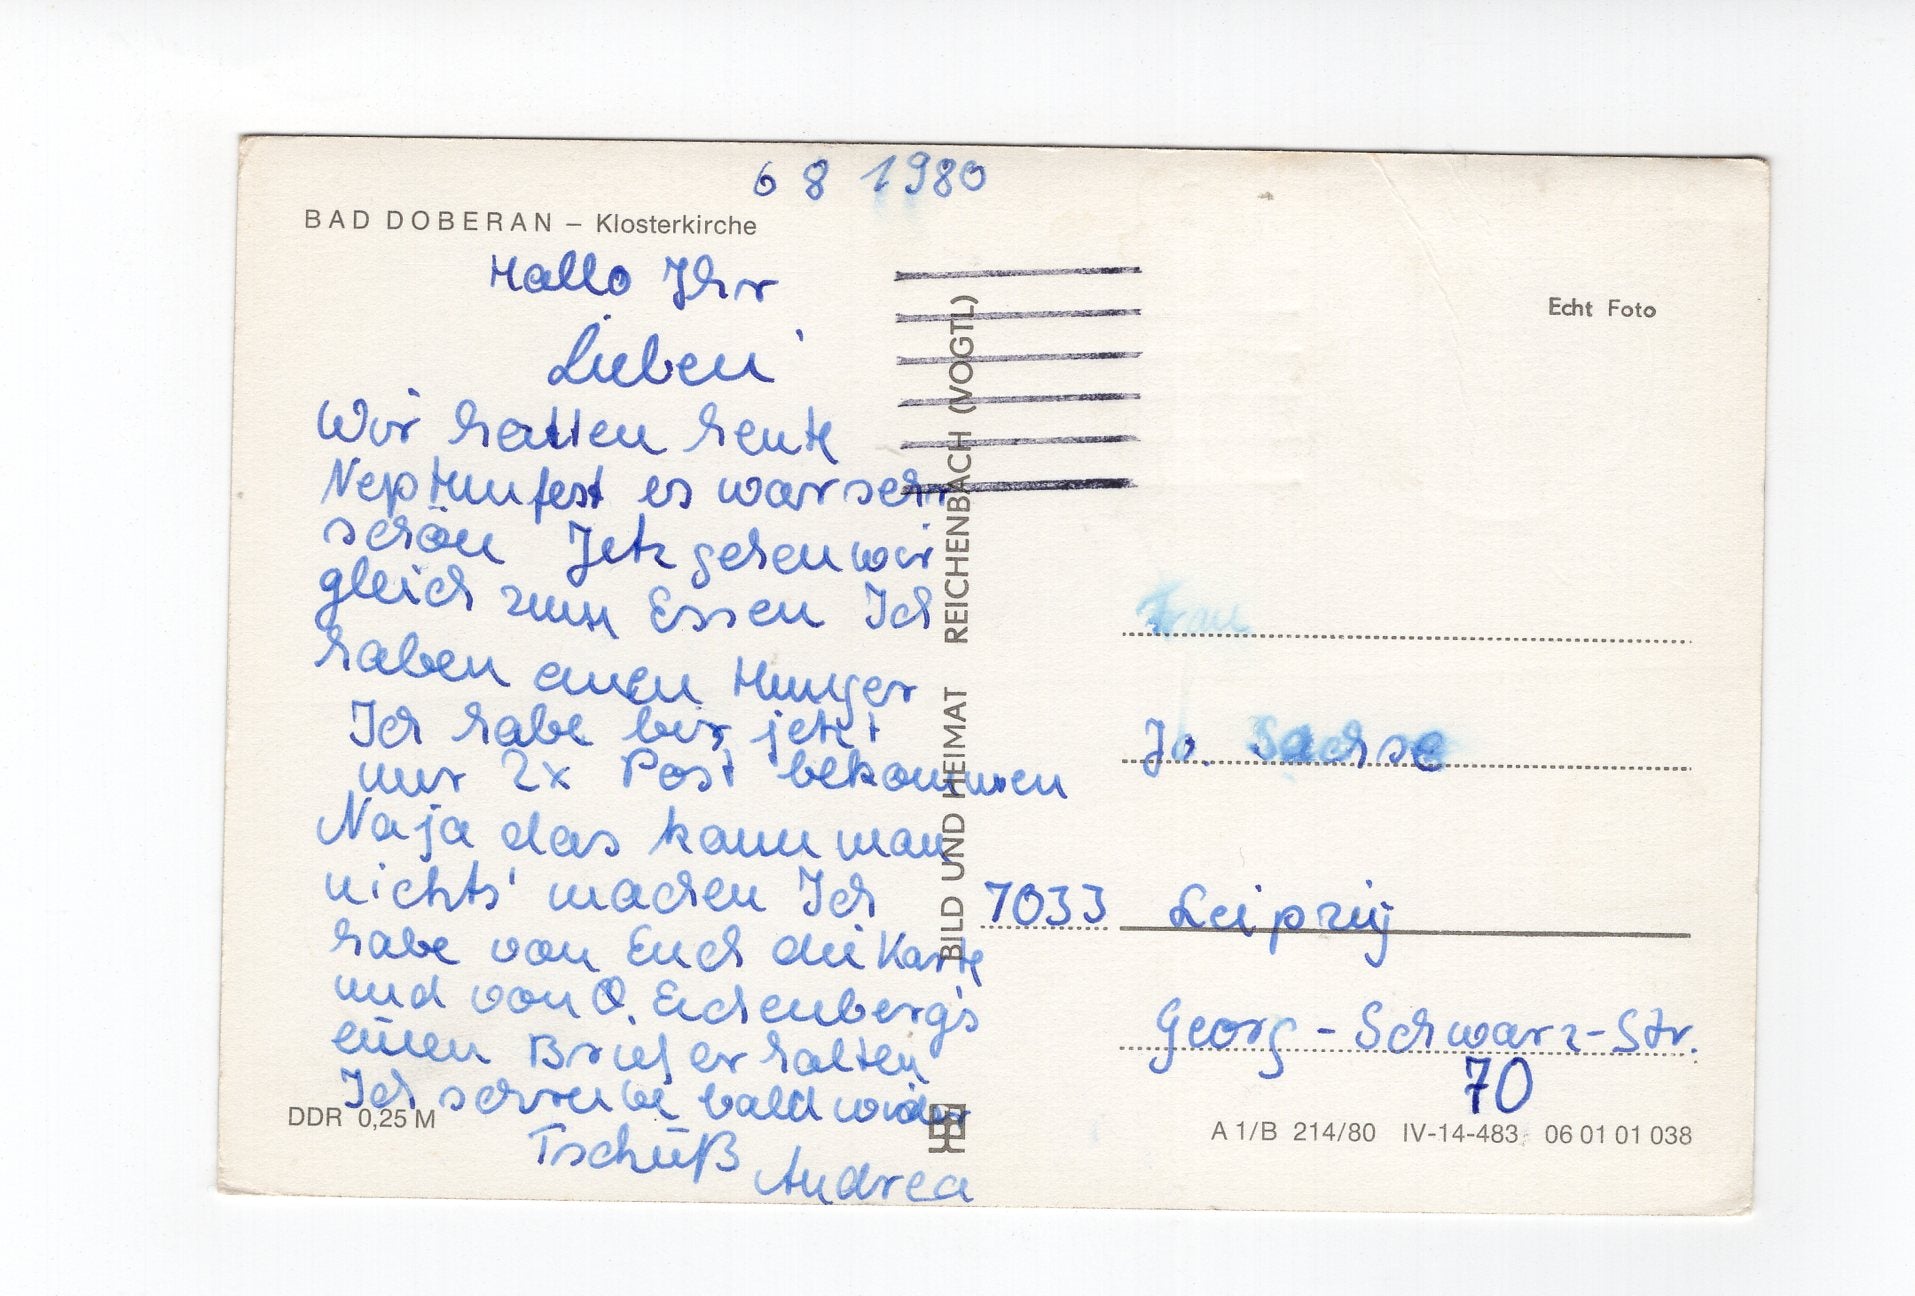 6 8 1980
BAD DOBERAN – Klosterkirche
Hallo Ihr
Lieben
Wir hatten heute
Neptunfest es war sehr
schön Jetz gehen wir
gleich zum Essen Ich
haben einen Hunger
Ich habe bis jetzt
nur 2x Post bekommen
Naja das kann man
nichts machen Ich
habe von Euch die Karte
und von O. Eichenberg's
einen Brief erhalten
Ich schreibe bald wider
Tschüß Andrea
DDR 0,25 M
BILD UND HEIMAT REICHENBACH (VOGTL)
Echt Foto
Frau
Sachse
7033 Leipzig
Georg-Schwarz-Str.
70
A 1/B 214/80 IV-14-483 06 01 01 038